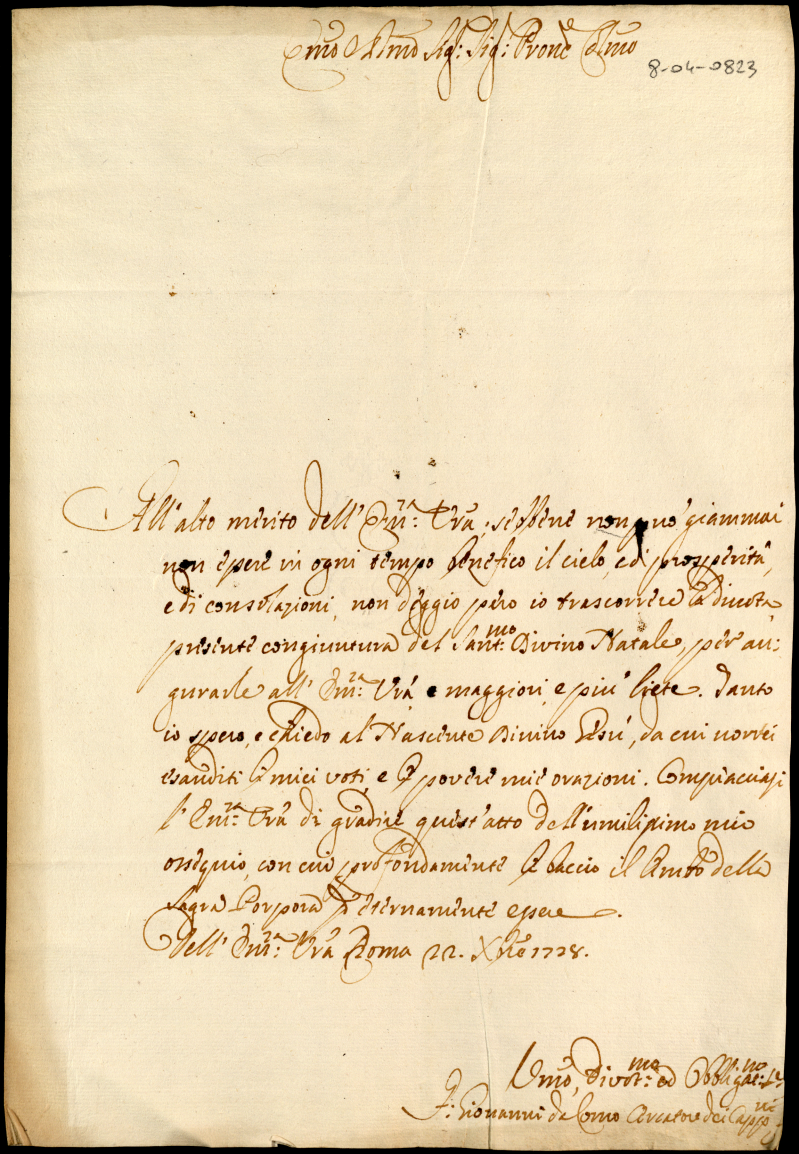 Emo e Rmo Sig: Sig: Prone Colmo
8-04-0823
All'alto merito dell'Em:za Vra, sebbene non può giammai
non essere in ogni tempo benefico il cielo, e di prosperità,
e di consolazioni, non deggio però io trascorrere la divota
presente congiuntura del Sant:mo Divino Natale, per au:
gurarle all'Em:za Vra e maggiori, e più liete. Tanto
io spero, e chiedo al Nascente Divino Gesù, da cui vorrei
esauditi li miei voti, e le povere mie orazioni. Compiacciasi
l'Em:za Vra di gradire quest'atto dell'umilissimo mio
ossequio, con cui profondamente le baccio il lembo della
Sagra Porpora p eternamente essere.
Dell'Em:za Vra Roma 22. Xbre 1728.
Vmo, Divot:mo ed Obblig:mo
F: Giovanni da Como Cercatore dei Capp:ni